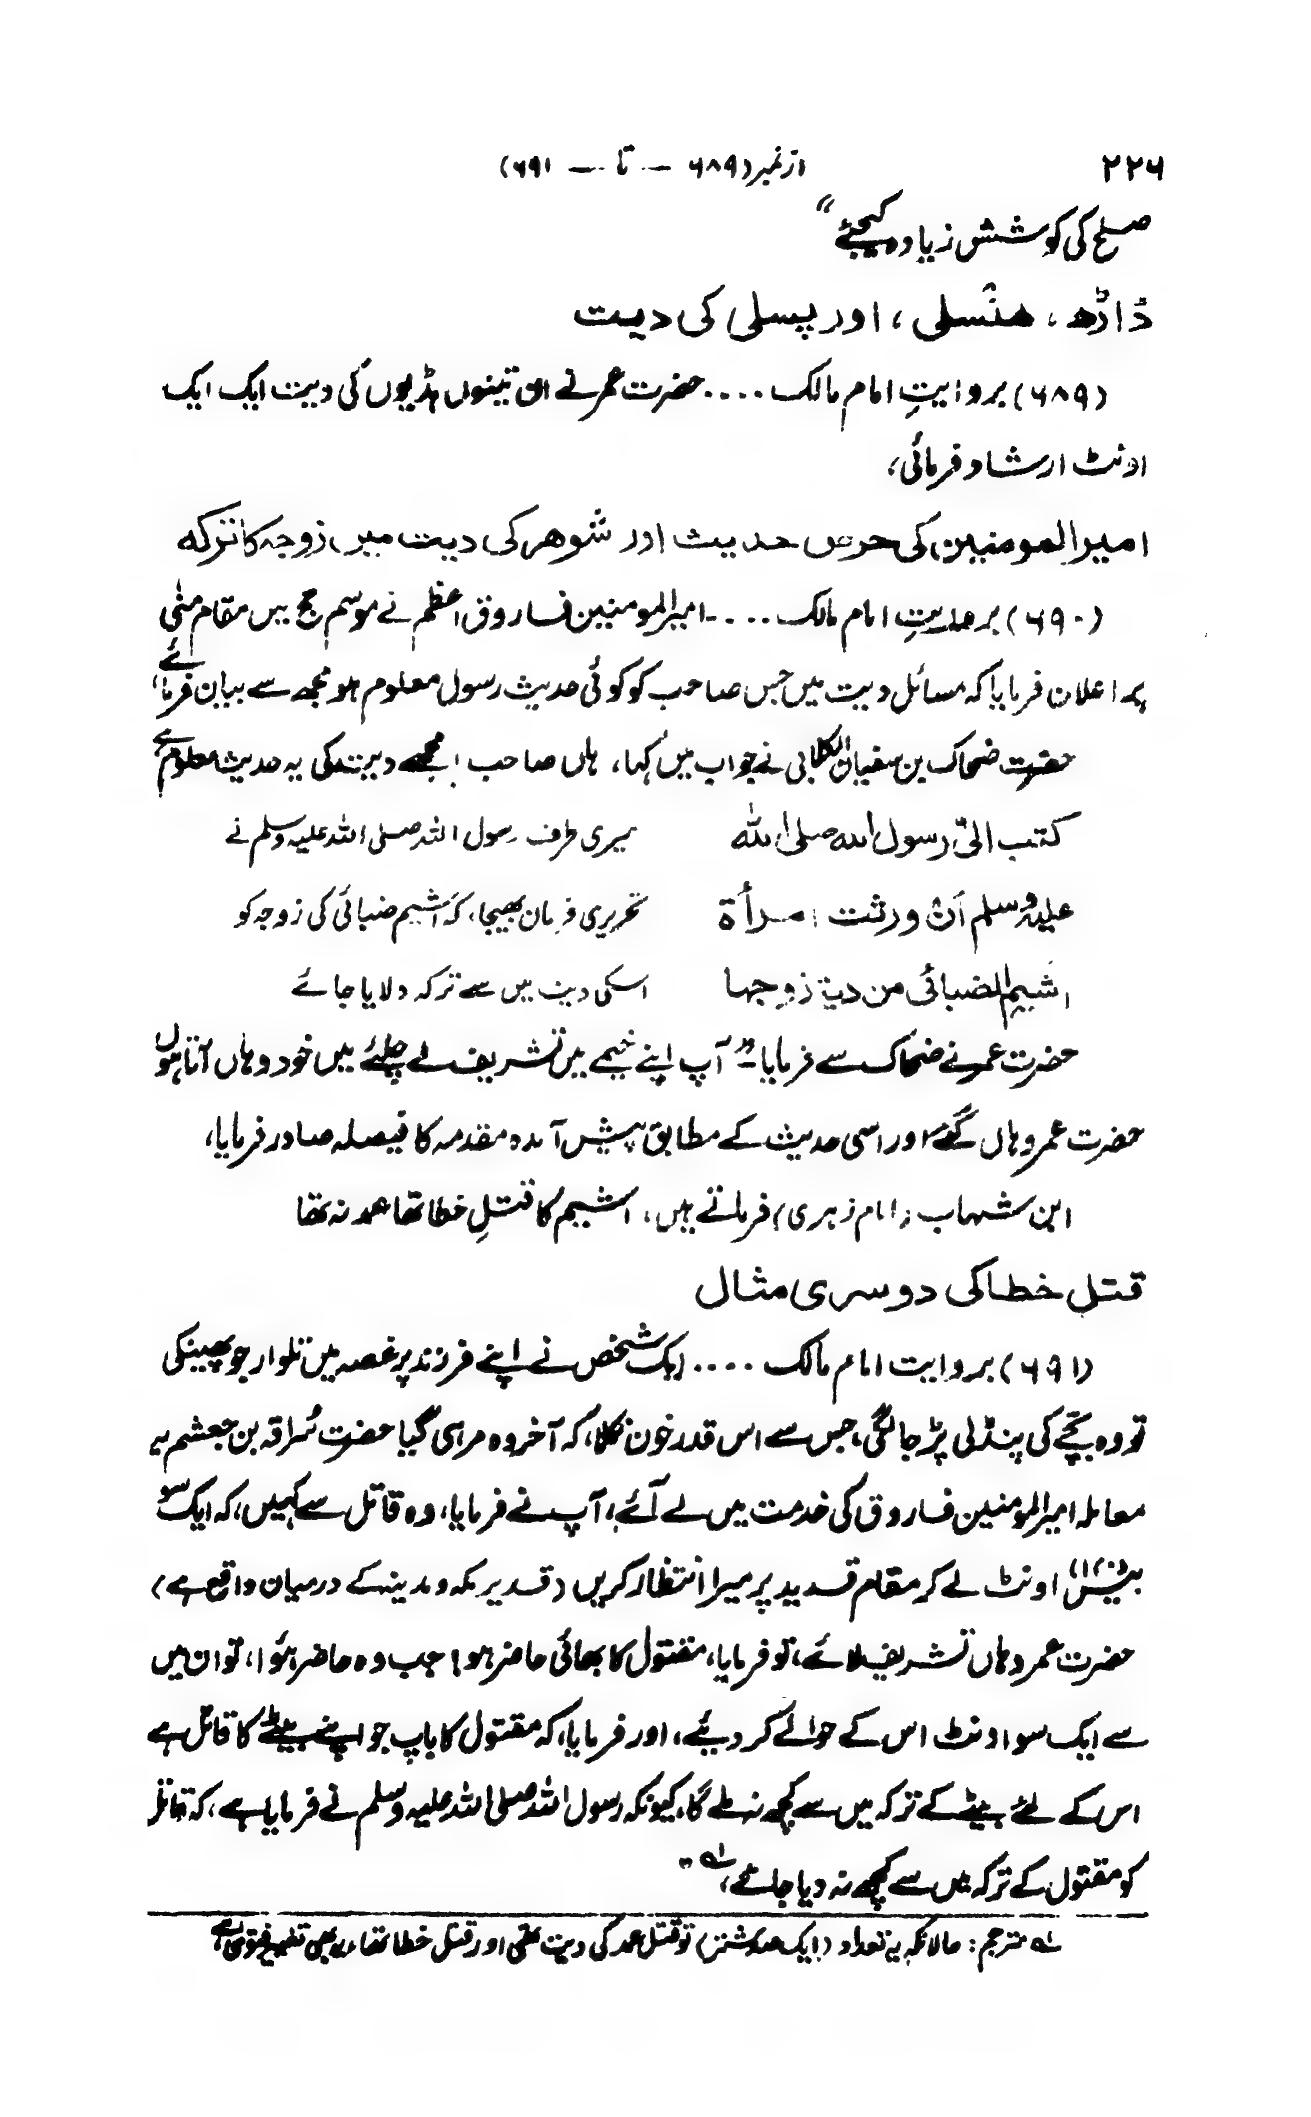 ۲۲۶
از نمبر (۶۸۹ — تا — ۶۹۱)
صلح کی کوشش زیادہ کیجئے"
ڈاڑھ، ہنسلی، اور پسلی کی دیت
(۶۸۹) بروایتِ امام مالک .... حضرت عمر نے ان تینوں ہڈیوں کی دیت ایک ایک
اونٹ ارشاد فرمائی،
امیرالمومنین کی حرص حدیث اور شوہر کی دیت میں زوجہ کا ترکہ
(۶۹۰) بروایتِ امام مالک .... امیرالمومنین فاروق اعظم نے موسم حج میں مقام منٰی
پر اعلان فرمایا کہ مسائل دیت میں جس صاحب کو کوئی حدیث رسول معلوم ہو مجھ سے بیان فرمائے،
حضرت ضحاک بن سفیان الکلابی نے جواب میں کہا، ہاں صاحب! مجھے دیت کی یہ حدیث معلوم ہے
کتب الیّ رسول الله صلی الله
میری طرف رسول اللہ صلی اللہ علیہ وسلم نے
علیہ وسلم اَن ورثت امرأة
تحریری فرمان بھیجا، کہ اَشیم ضبائی کی زوجہ کو
اشیم الضبائی من دیة زوجها
اسکی دیت میں سے ترکہ دلایا جائے
حضرت عمر نے ضحاک سے فرمایا "آپ اپنے خیمے میں تشریف لے چلئے میں خود وہاں آتا ہوں
حضرت عمر وہاں گئے اور اسی حدیث کے مطابق پیش آمدہ مقدمہ کا فیصلہ صادر فرمایا،
ابن شہاب (امام زہری) فرماتے ہیں، اشیم کا قتلِ خطا تھا عمد نہ تھا
قتلِ خطا کی دوسری مثال
(۶۹۱) بروایت امام مالک .... ایک شخص نے اپنے فرزند پر غصہ میں تلوار جو پھینکی
تو وہ بچے کی پنڈلی پڑ جا لگی، جس سے اس قدر خون نکلا، کہ آخر وہ مر ہی گیا حضرت سُراقہ بن جعشم یہ
معاملہ امیرالمومنین فاروق کی خدمت میں لے آئے، آپ نے فرمایا، وہ قاتل سے کہیں، کہ ایک سو
بیس (۱۲۰) اونٹ لے کر مقام قدید پر میرا انتظار کریں (قدید مکہ و مدینہ کے درمیان واقع ہے)
حضرت عمر وہاں تشریف لائے، تو فرمایا، مقتول کا بھائی حاضر ہو! جب وہ حاضر ہُوا، تو ان میں
سے ایک سو اونٹ اس کے حوالے کر دیئے، اور فرمایا، کہ مقتول کا باپ جو اپنے بیٹے کا قاتل ہے
اس کے لئے بیٹے کے ترکہ میں سے کچھ نہ ملے گا، کیونکہ رسول اللہ صلی اللہ علیہ وسلم نے فرمایا ہے، کہ قاتل
کو مقتول کے ترکہ میں سے کچھ نہ دیا جائے، "
مترجم: حالانکہ یہ تعداد (ایک صد شتر) تو قتل عمد کی دیت تھی اور قتل خطا تھا